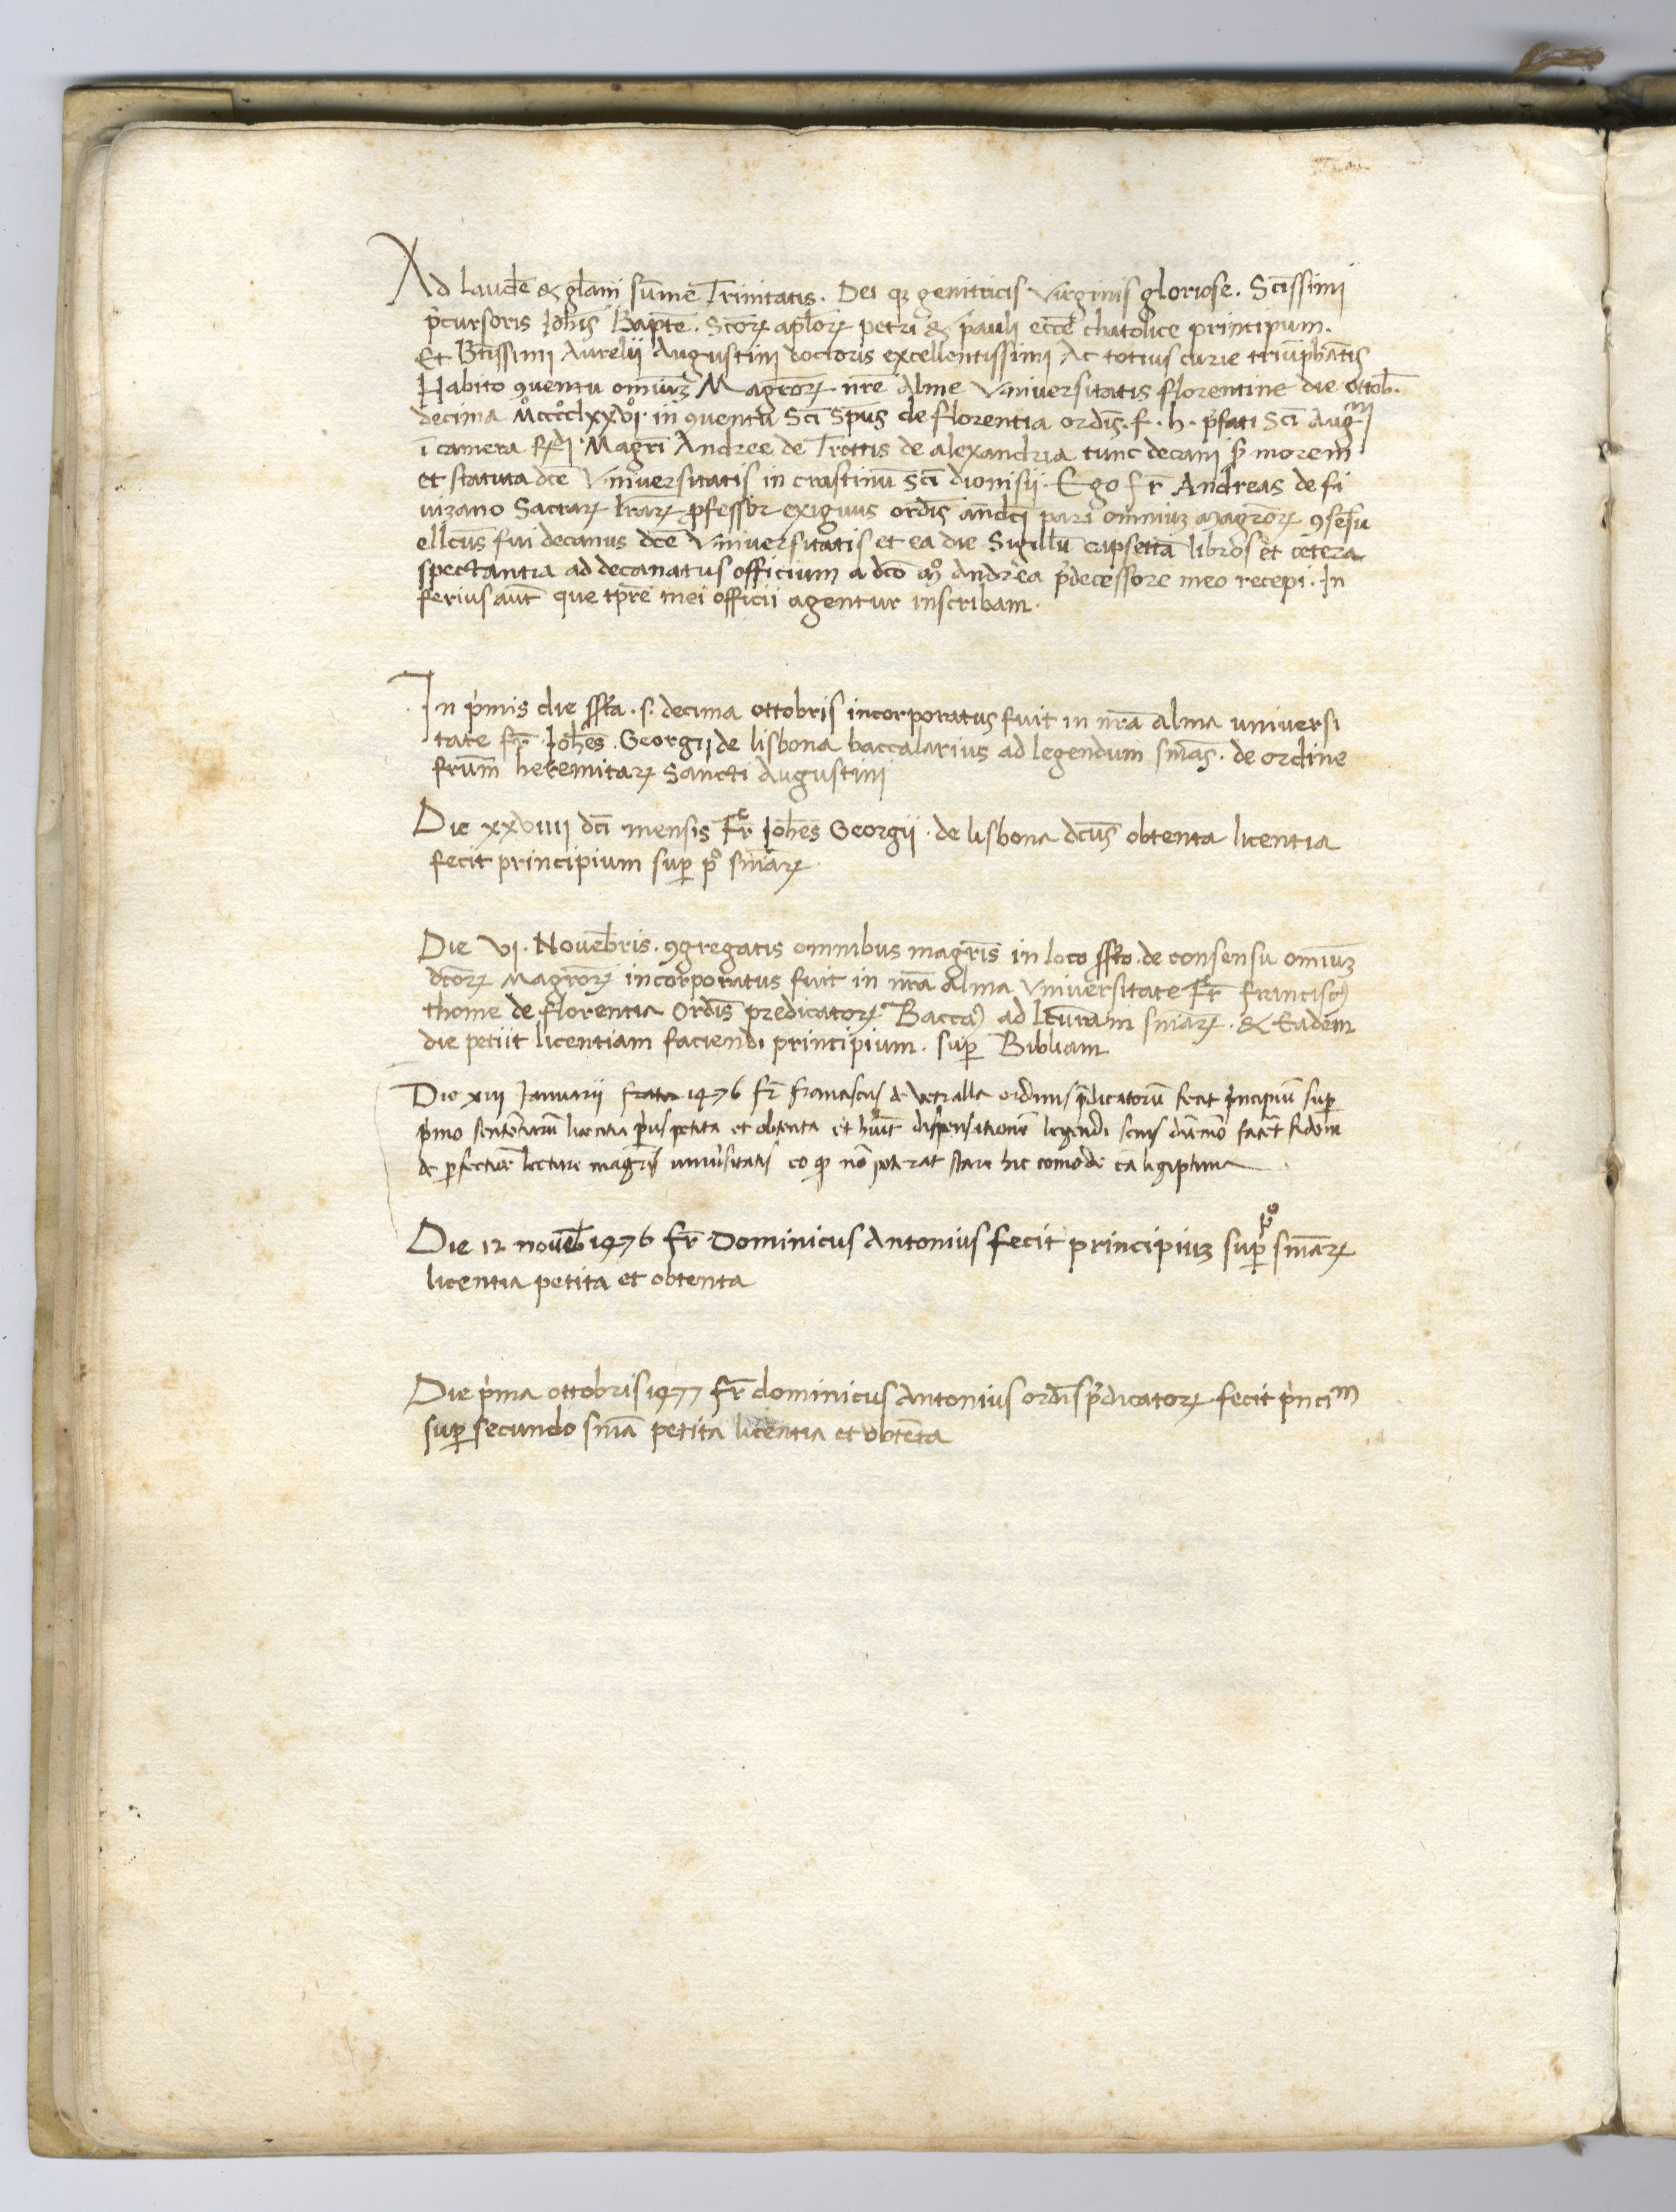 Ad laudē & gła̅m sūme Trinitatis. Dei qȝ genitricis virginis gloriose. Scīssimi
p̄cursoris Joh̄is Bap̄te. Sctōꝝ apl̄oꝝ petri & pauli ecc̄e chatolice principum.
Et Btīssimi Aurelii Augustini doctoris excellentissimi Ac totius curie triūphātis
Habito ꝯuentu omiūȝ Magr̄oꝝ nr̄e Alme Vniversitatis florentine die ottob̄.
decima Mͦccccͦlxxvjͦ in ꝯuentu Sc̄i Sp̄us de florentia ordīs. f. h. p̄fati Sc̄i Augni
ī camera Rdi Magr̄i Andree de Trottis de alexandria tunc decani s̄ morem
et statuta dc̄e Vniversitatis in crastinū Sc̄i dionisii. Ego fr̄ Andreas de fi
uizano Sacraꝝ lr̄aꝝ ꝓfessor exiguus ordīs an̄dc̄i pari omniuȝ magr̄oꝝ ꝯsēsu
ellc̄us fui decanus dc̄e Vniversitatis et ea die Sigillū capsettā libros et cetera
spectantia ad decanatus officium a dc̄o mͦ Andrea p̄decessore meo recepi. In
ferius aut̄ que tp̄re mei officii agentur inscribam.
In p̄mis die ss̄ta. s. decima ottobris incorporatus fuit in nr̄a alma universi
tate fr̄ Joh̄es Georgii de lisbona baccalarius ad legendum sn̄ias. de ordine
fr̄um heremitaꝝ Sancti Augustini
Die xxviiii dc̄i mensis Fr̄ Joh̄es Georgii. de lisbona dc̄us obtenta licentia
fecit principium suꝑ pͦ sn̄iaꝝ.
Die vi. Novēbris. ꝯgregatis omnibus magr̄is in loco ss̄to. de consensu omiūȝ
dc̄oꝝ Magr̄oꝝ incorporatus fuit in nr̄a alma Vniversitate Fr̄ franciscꝰ
thome de florentia Ordīs predicatoꝝ Bacca) ad lc̄turam sn̄iaꝝ. & Eadem
die petiit licentiam faciendi principium. suꝑ Bibliam
Die xiii Januarii frater 1476 fr̄ franciscus de Vetralla ordinis p̄dicatorū fecit p̄ncipiū suꝑ
p̄mo sententiarū licentia p̄us petita et obtenta et hūit dispensationē legendi
de ꝑfectiōe lecture magr̄is uniūsitatis eo ꝙ nō poterat stare hic comode cā ligiptima
Die 12 novēb 1476 fr̄ Dominicus Antonius fecit principiuȝ suꝑ pͦ sn̄iaꝝ
licentia petita et obtenta
Die p̄ma ottobris 1477 fr̄ dominicus Antonius ordīs p̄dicatoꝝ fecit p̄ncim
suꝑ secundo sn̄ia petita licentia et obtēta